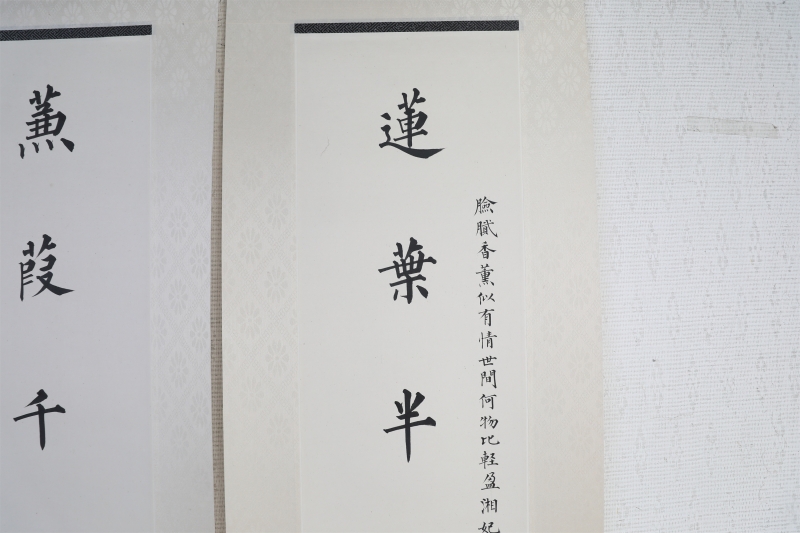 蓮葉半
臉膩香薰似有情世間何物比軽盈湘妃
蒹葭千